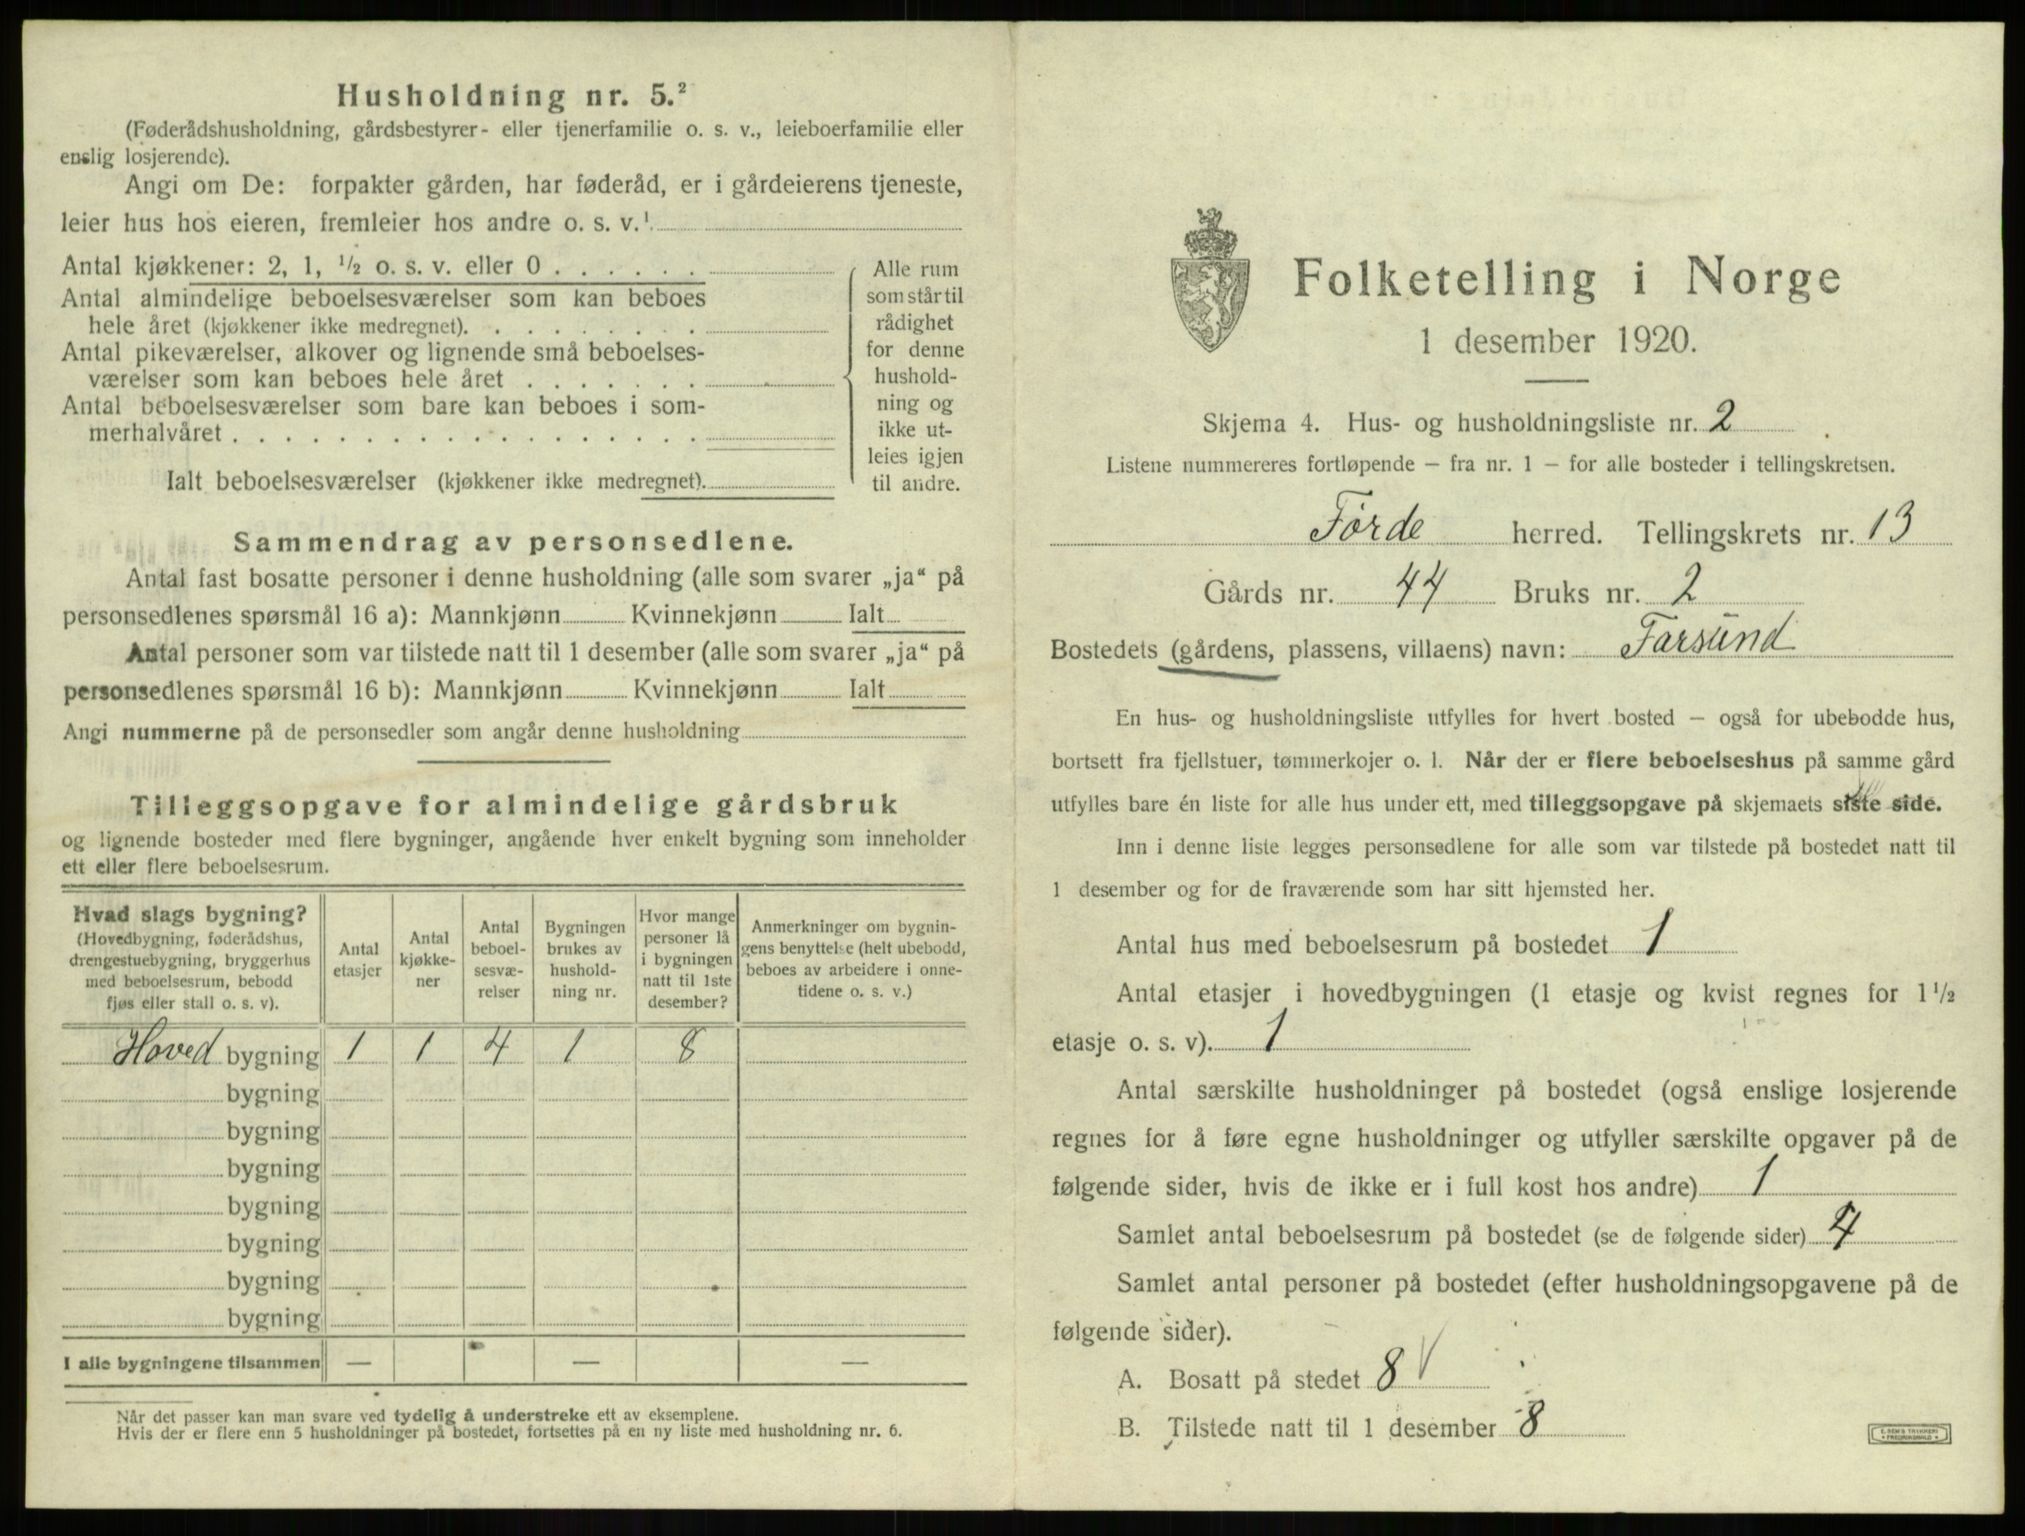 Husholdning nr. 5.²
(Føderådshusholdning, gårdsbestyrer- eller tjenerfamilie o. s. v., leieboerfamilie eller
enslig losjerende).
Angi om De: forpakter gården, har føderåd, er i gårdeierens tjeneste,
leier hus hos eieren, fremleier hos andre o. s. v.¹
Antal kjøkkener: 2, 1, ½ o. s. v. eller 0 . . . . . .
Antal almindelige beboelsesværelser som kan beboes
hele året (kjøkkener ikke medregnet). . . . . . . . .
Antal pikeværelser, alkover og lignende små beboelses-
værelser som kan beboes hele året . . . . . . .
Antal beboelsesværelser som bare kan beboes i som-
merhalvåret . . . . . . . . . . . . . . . . . .
Ialt beboelsesværelser (kjøkkener ikke medregnet).
Alle rum
som står til
rådighet
for denne
hushold-
ning og
ikke ut-
leies igjen
til andre.
Sammendrag av personsedlene.
Antal fast bosatte personer i denne husholdning (alle som svarer „ja“ på
personsedlenes spørsmål 16 a): Mannkjønn Kvinnekjønn Ialt
Antal personer som var tilstede natt til 1 desember (alle som svarer „ja“ på
personsedlenes spørsmål 16 b): Mannkjønn Kvinnekjønn Ialt
Angi nummerne på de personsedler som angår denne husholdning
Tilleggsopgave for almindelige gårdsbruk
og lignende bosteder med flere bygninger, angående hver enkelt bygning som inneholder
ett eller flere beboelsesrum.
Hvad slags bygning?
(Hovedbygning, føderådshus,
drengestuebygning, bryggerhus
med beboelsesrum, bebodd
fjøs eller stall o. s. v).
Antal
etasjer
Antal
kjøkke-
ner
Antal
beboel-
sesvæ-
relser
Bygningen
brukes av
hushold-
ning nr.
Hvor mange
personer lå
i bygningen
natt til 1ste
desember?
Anmerkninger om bygnin-
gens benyttelse (helt ubebodd,
beboes av arbeidere i onne-
tidene o. s. v.)
Hoved bygning 1 1 4 1 8
bygning
bygning
bygning
bygning
bygning
bygning
bygning
I alle bygningene tilsammen — — —
Når det passer kan man svare ved tydelig å understreke ett av eksemplene.
Hvis der er flere enn 5 husholdninger på bostedet, fortsettes på en ny liste med husholdning nr. 6.
Folketelling i Norge
1 desember 1920.
Skjema 4. Hus- og husholdningsliste nr. 2
Listene nummereres fortløpende – fra nr. 1 – for alle bosteder i tellingskretsen.
Førde herred. Tellingskrets nr. 13
Gårds nr. 44 Bruks nr. 2
Bostedets (gårdens, plassens, villaens) navn: Farsünd
En hus- og husholdningsliste utfylles for hvert bosted – også for ubebodde hus,
bortsett fra fjellstuer, tømmerkojer o. l. Når der er flere beboelseshus på samme gård
utfylles bare én liste for alle hus under ett, med tilleggsopgave på skjemaets siste side.
Inn i denne liste legges personsedlene for alle som var tilstede på bostedet natt til
1 desember og for de fraværende som har sitt hjemsted her.
Antal hus med beboelsesrum på bostedet 1
Antal etasjer i hovedbygningen (1 etasje og kvist regnes for 1½
etasje o. s. v). 1
Antal særskilte husholdninger på bostedet (også enslige losjerende
regnes for å føre egne husholdninger og utfyller særskilte opgaver på de
følgende sider, hvis de ikke er i full kost hos andre) 1
Samlet antal beboelsesrum på bostedet (se de følgende sider) 4
Samlet antal personer på bostedet (efter husholdningsopgavene på de
følgende sider).
A. Bosatt på stedet 8 √
B. Tilstede natt til 1 desember 8